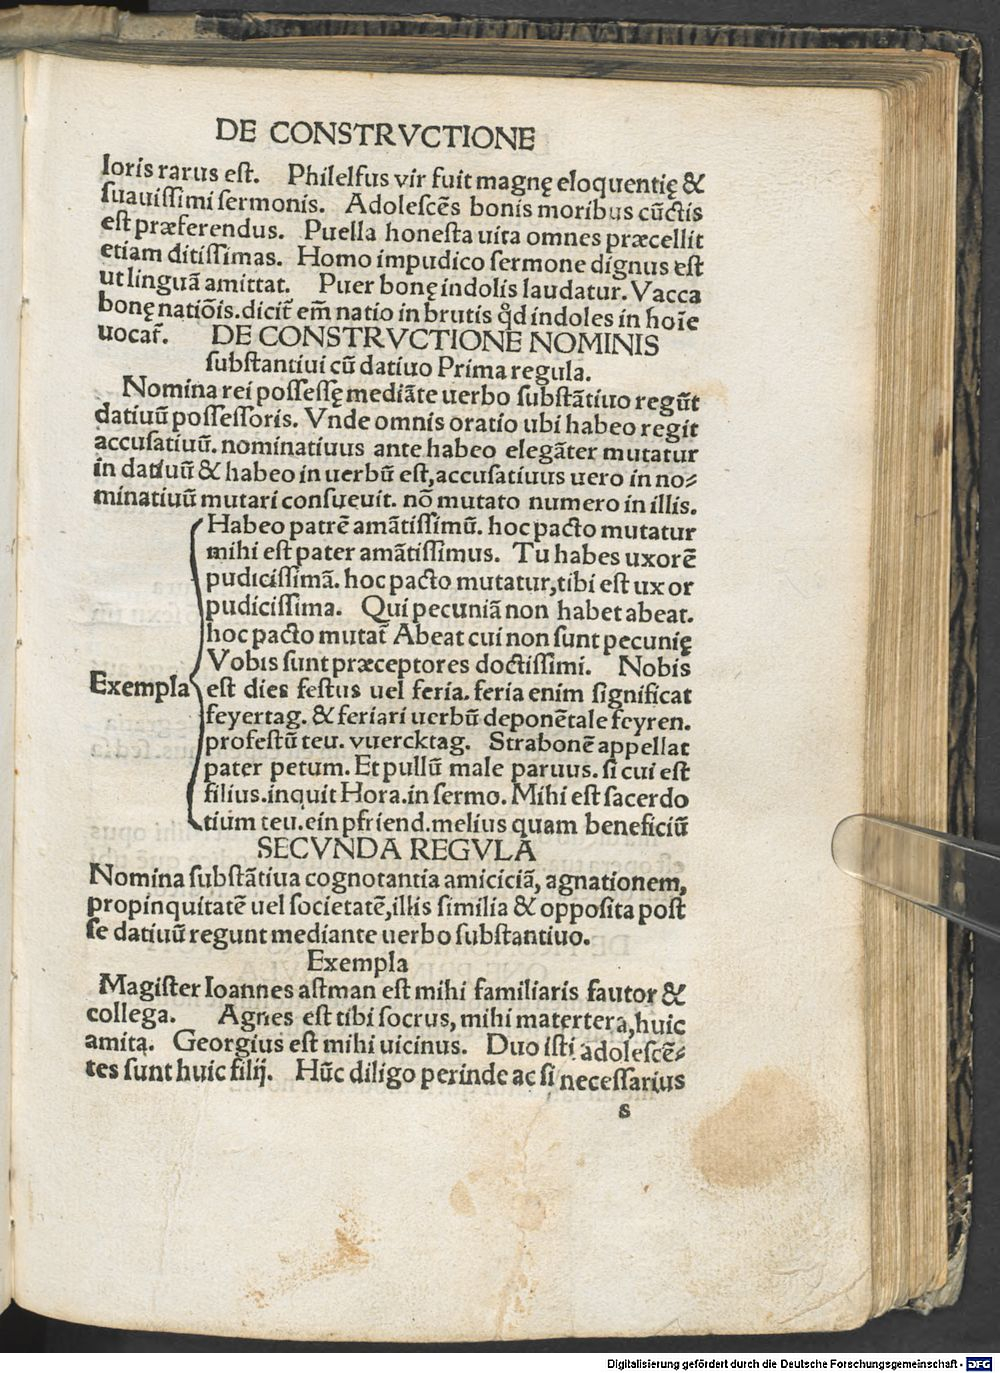 DE CONSTRVCTIONE
loris rarus est. Philelfus vir fuit magnę eloquentię &
suauissimi sermonis. Adolescēs bonis moribus cūctis
est præferendus. Puella honesta uita omnes præcellit
etiam ditissimas. Homo impudico sermone dignus est
ut linguā amittat. Puer bonę indolis laudatur. Vacca
bonę natiōis. dicit̄ em̄ natio in brutis qd̄ indoles in hoīe
uocat̄. DE CONSTRVCTIONE NOMINIS
substantiui cū datiuo Prima regula.
Nomina rei possessę mediāte uerbo substātiuo regūt
datiuū possessoris. Vnde omnis oratio ubi habeo regit
accusatiuū. nominatiuus ante habeo elegāter mutatur
in datiuū & habeo in uerbū est, accusatiuus uero in no⸗
minatiuū mutari consueuit. nō mutato numero in illis.
Habeo patrē amātissimū. hoc pacto mutatur
mihi est pater amātissimus. Tu habes uxorē
pudicissimā. hoc pacto mutatur, tibi est uxor
pudicissima. Qui pecuniā non habet abeat.
hoc pacto mutat̄ Abeat cui non sunt pecunię
Vobis sunt præceptores doctissimi. Nobis
Exempla est dies festus uel feria. feria enim significat
feyertag. & feriari uerbū deponētale feyren.
profestū teu. vuercktag. Strabonē appellat
pater petum. Et pullū male paruus. si cui est
filius. inquit Hora. in sermo. Mihi est sacerdo
tium teu. ein pfriend. melius quam beneficiū
SECVNDA REGVLA
Nomina substātiua cognotantia amiciciā, agnationem,
propinquitatē uel societatē, illis similia & opposita post
se datiuū regunt mediante uerbo substantiuo.
Exempla
Magister Ioannes astman est mihi familiaris fautor &
collega. Agnes est tibi socrus, mihi matertera, huic
amita. Georgius est mihi uicinus. Duo isti adolescē⸗
tes sunt huic filij. Hūc diligo perinde ac si necessarius
s
Digitalisierung gefördert durch die Deutsche Forschungsgemeinschaft - DFG